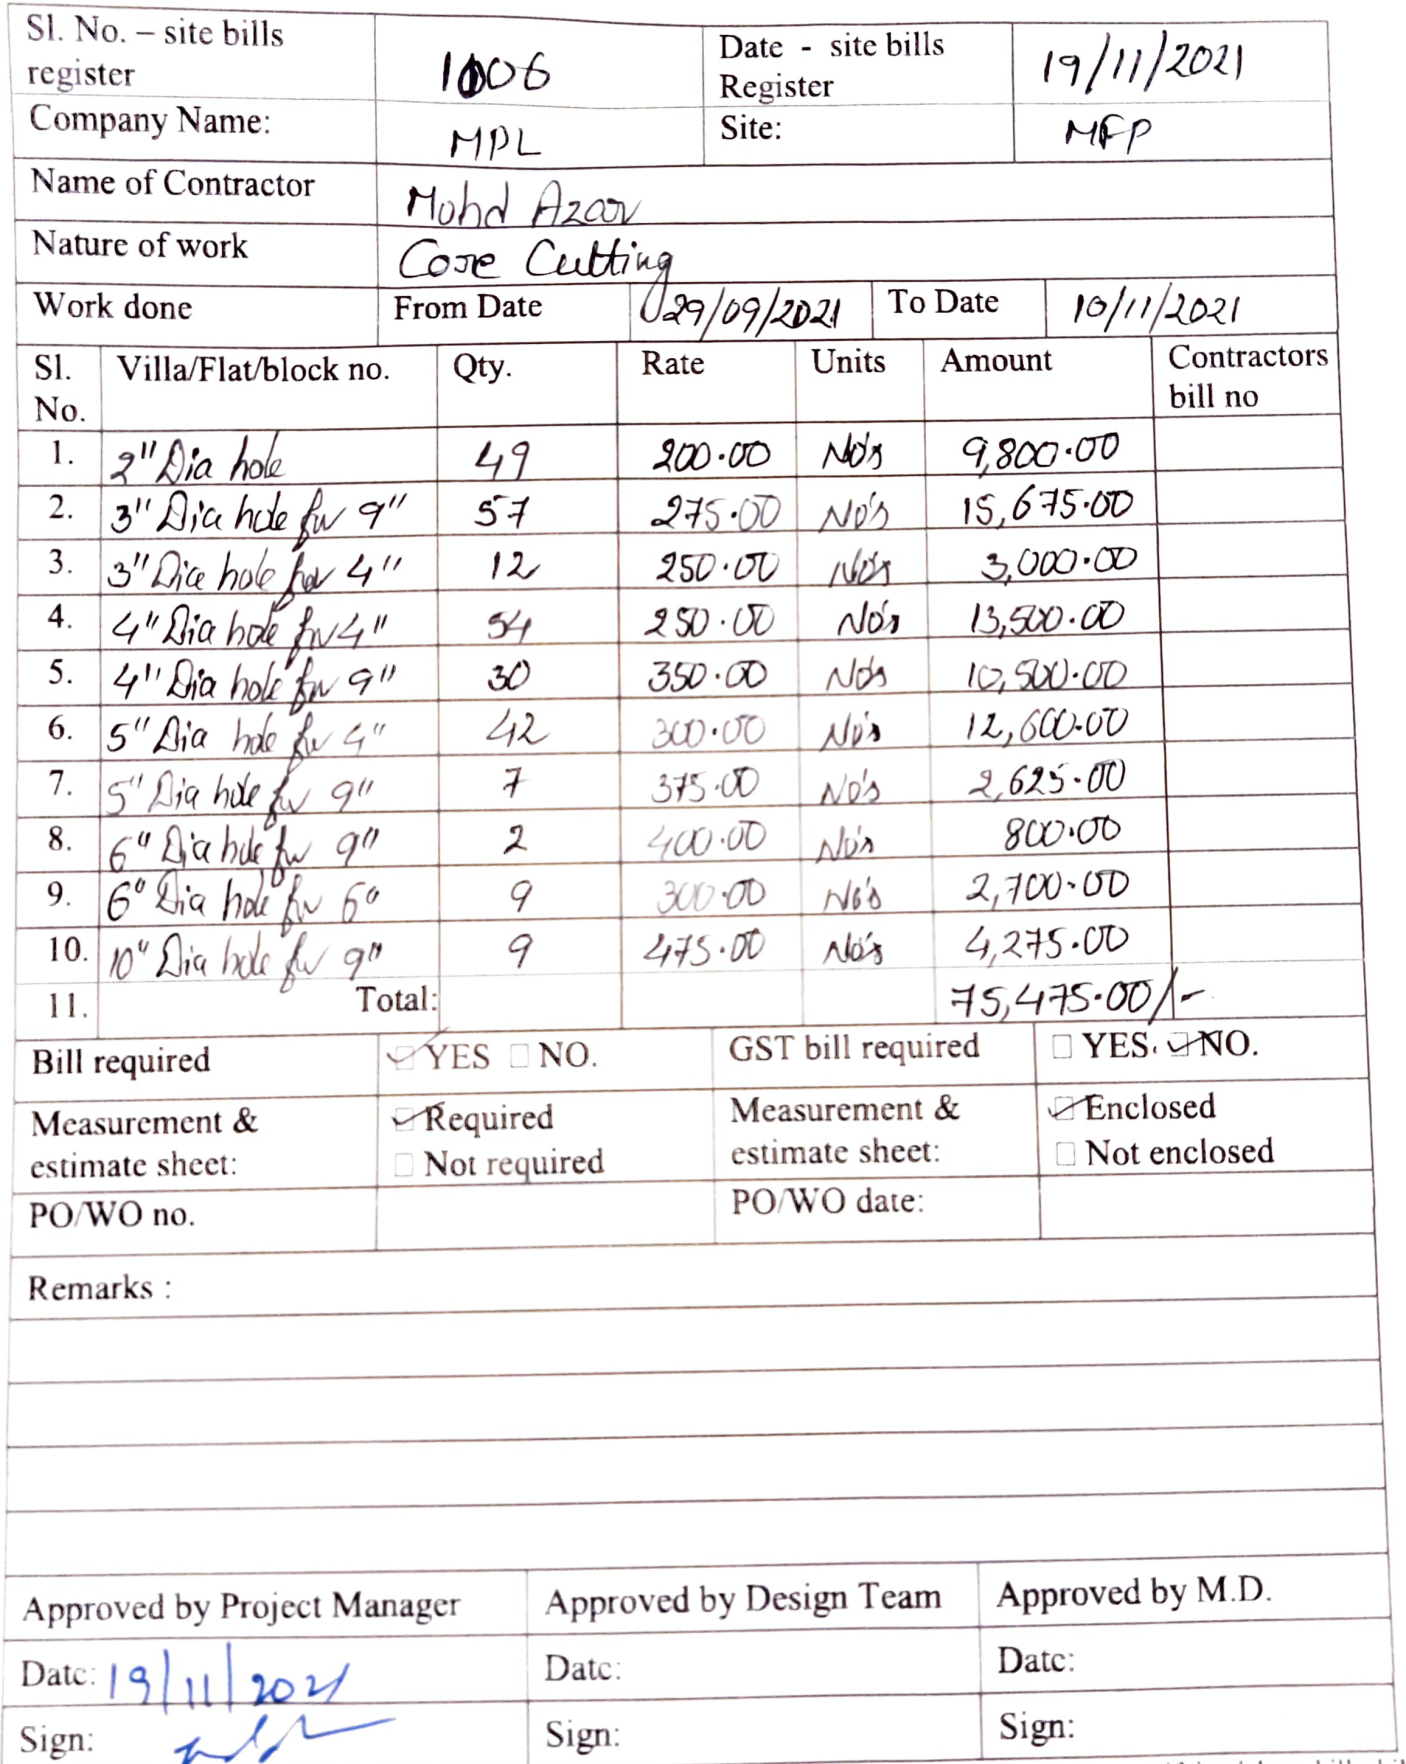 Sl. No. – site bills register 1006 Date - site bills Register 19/11/2021
Company Name: MPL Site: MFP
Name of Contractor Mohd Azar
Nature of work Core Cutting
Work done From Date 29/09/2021 To Date 10/11/2021
Sl. No. Villa/Flat/block no. Qty. Rate Units Amount Contractors bill no
1. 2" Dia hole 49 200.00 No's 9,800.00
2. 3" Dia hole for 9" 57 275.00 No's 15,675.00
3. 3" Dia hole for 4" 12 250.00 No's 3,000.00
4. 4" Dia hole for 4" 54 250.00 No's 13,500.00
5. 4" Dia hole for 9" 30 350.00 No's 10,500.00
6. 5" Dia hole for 4" 42 300.00 No's 12,600.00
7. 5" Dia hole for 9" 7 375.00 No's 2,625.00
8. 6" Dia hole for 9" 2 400.00 No's 800.00
9. 6" Dia hole for 6" 9 300.00 No's 2,700.00
10. 10" Dia hole for 9" 9 475.00 No's 4,275.00
11. Total: 75,475.00/-
Bill required YES NO. GST bill required YES. NO.
Measurement & estimate sheet: Required Not required Measurement & estimate sheet: Enclosed Not enclosed
PO/WO no. PO/WO date:
Remarks :
Approved by Project Manager Approved by Design Team Approved by M.D.
Date: 19/11/2021 Date: Date:
Sign: Sign: Sign: